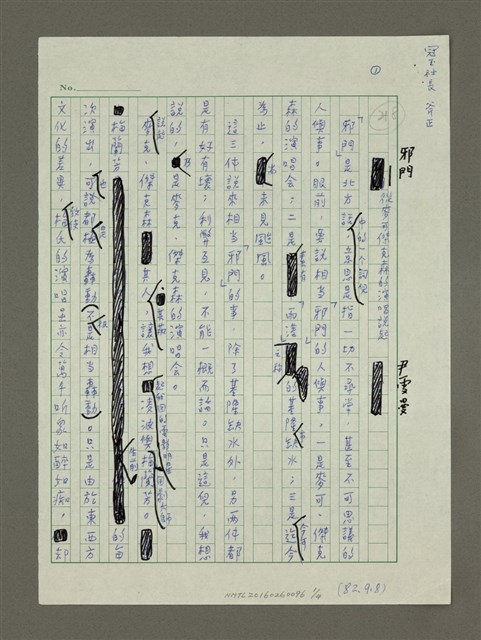 冠玉社長 斧正
①
No.
邪門
從麥可傑克森的演唱說起
尹雪曼
「邪門」是北方話中的一個詞兒，意思是指一切不尋常，甚至不可思議的
人僾事。眼前，要說相當「邪門」的人僾事，一是麥可．傑克
森的演唱会；二是「雨港」之稱的基隆缺水；三是迄今
為止，尚未見颱風。
這三件說來相當「邪門」的事，除了基隆缺水外，另兩件都
是有好有壞；利弊互見，不能一概而論。只是這兒，我想
說的，乃是麥克．傑克森的演唱会。
麥克．傑克森其人，讓我想起凌波與梅蘭芳。
梅蘭芳生前的每
次演出，可說也都是極為轟動（不是相當轟動）。只是由於東西方
文化的差異，致使梅氏的演唱虽亦令萬千听眾如醉如痴，却
NMTL20160260096 1/4
(82.9.8)